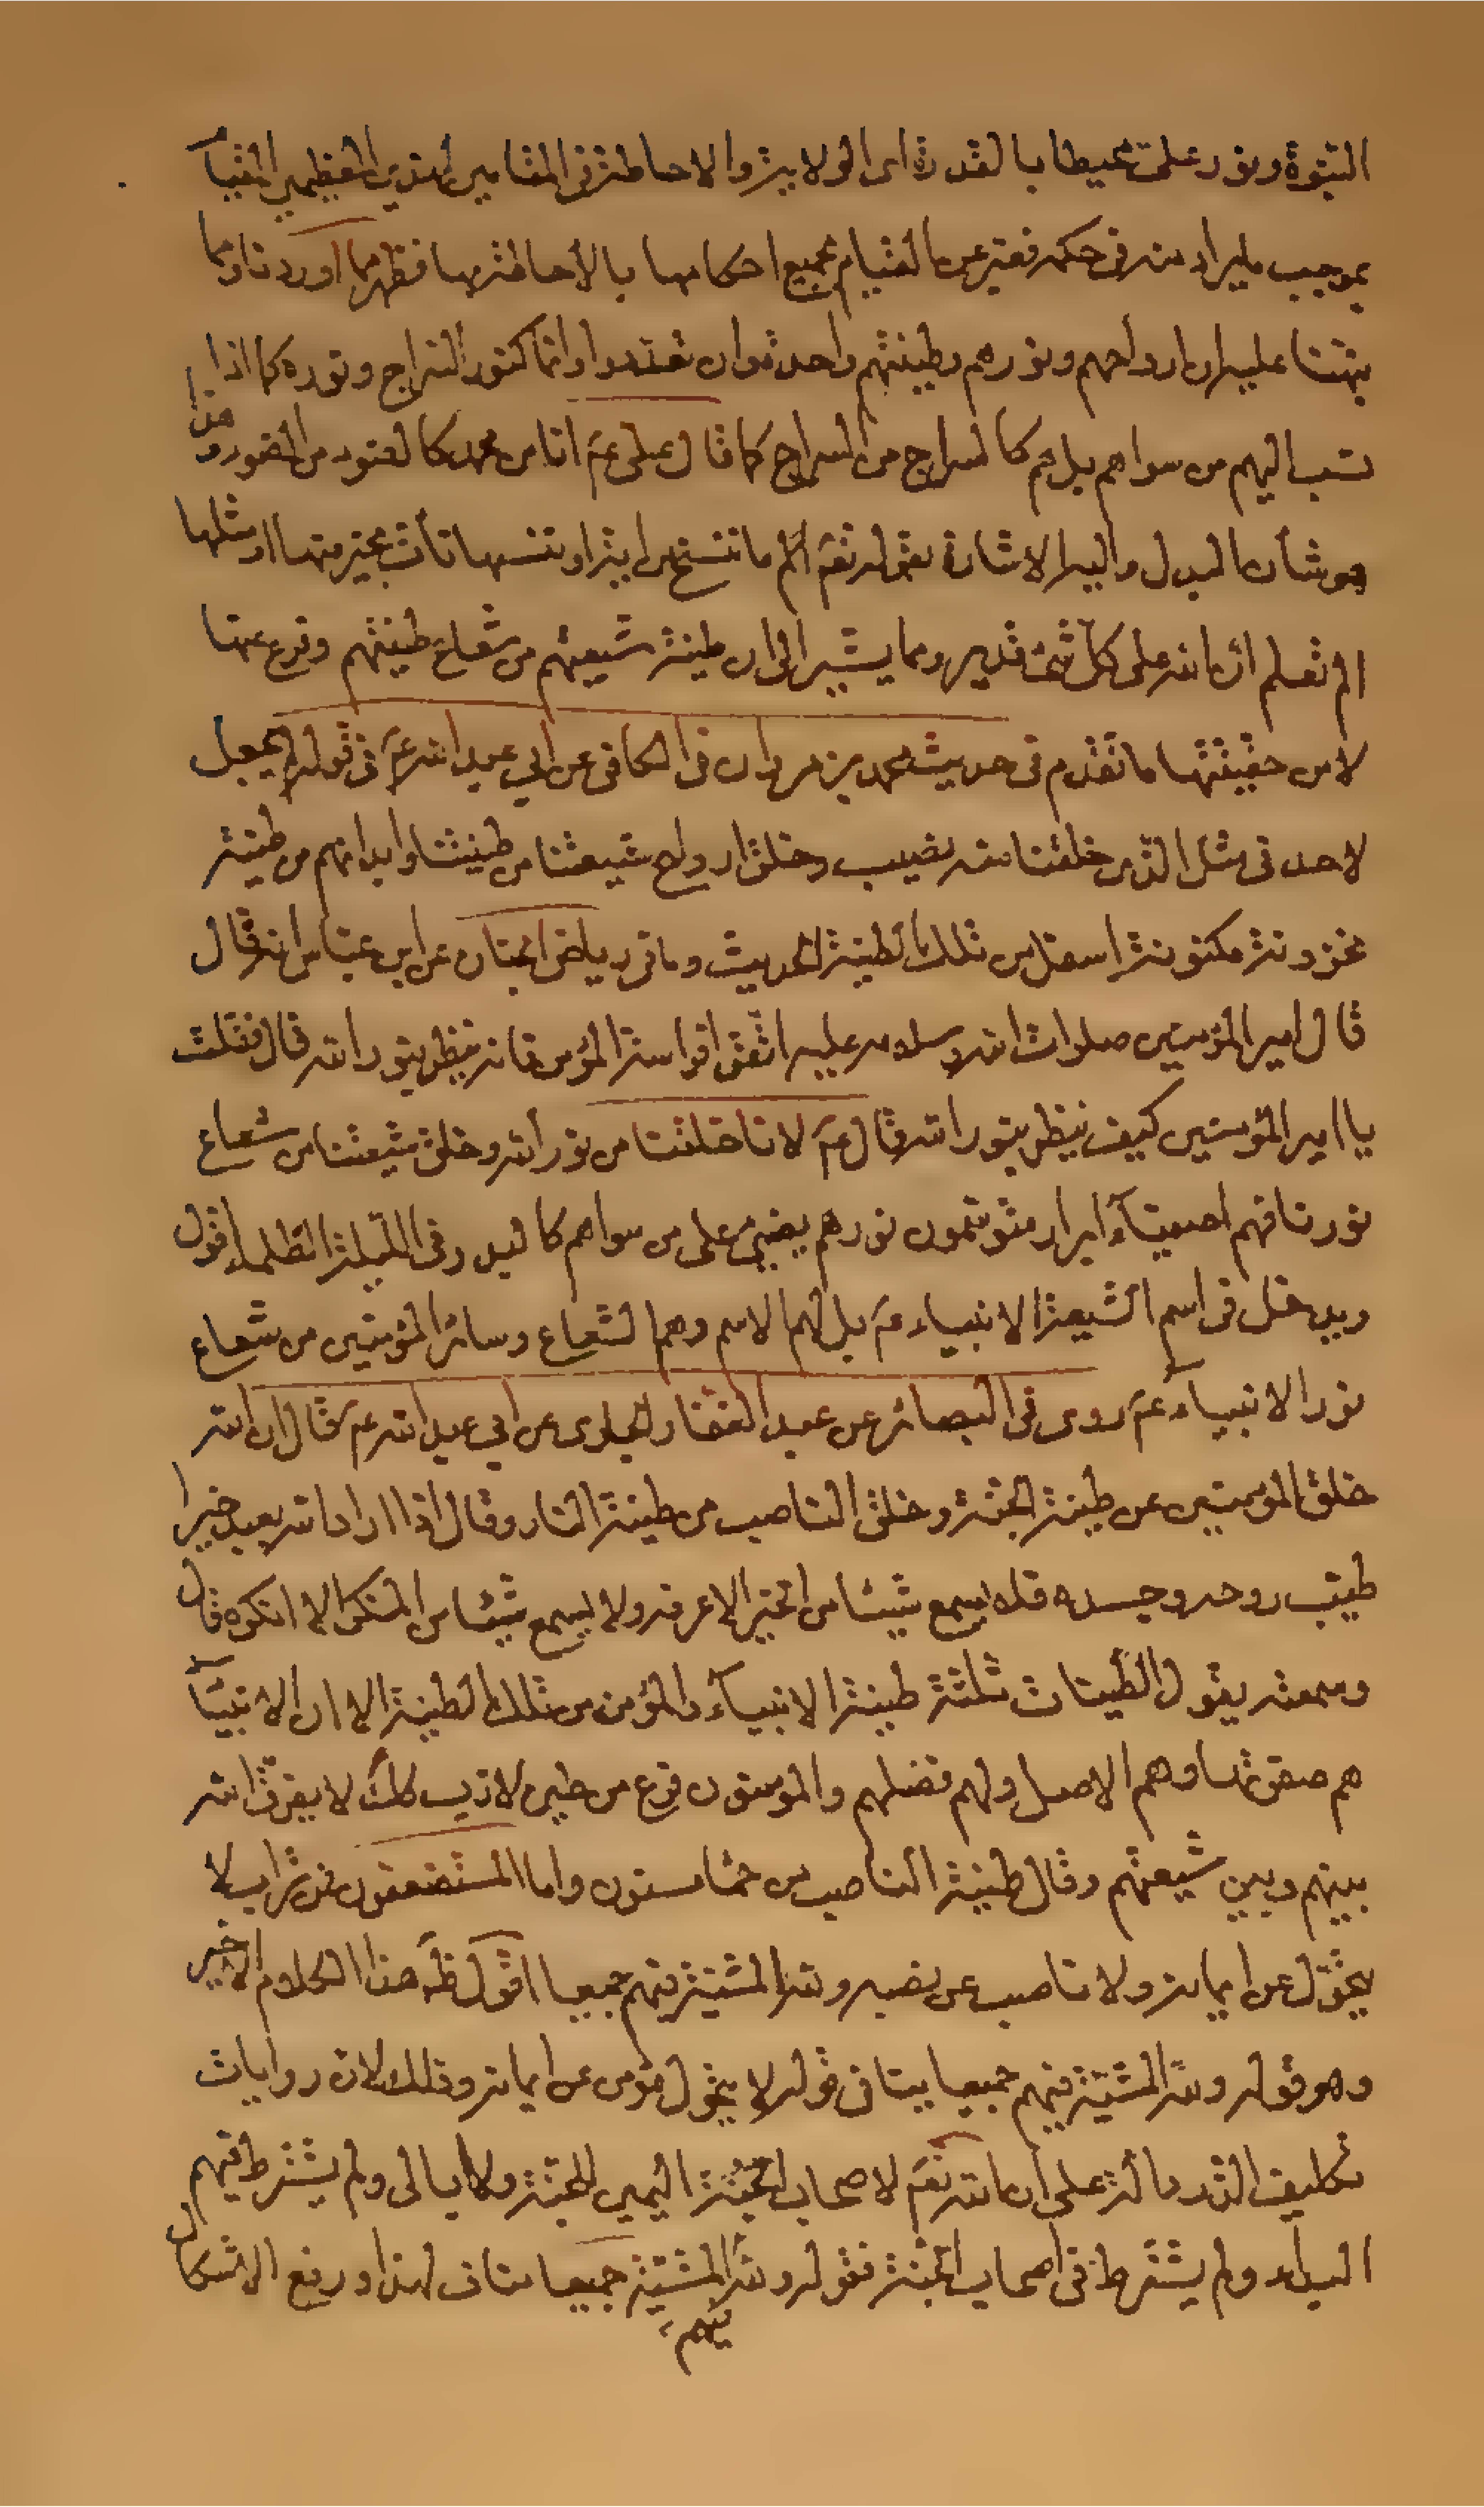 النبوة ونور علىّ محيطا بالقدرة اى الولاية والاحاطة فى المقامين لهذين العظيمين القيام
بموجب ما يراد منه فى حكمه فعبر عن القيام بجميع احكامها بالاحاطة بها فظهر مما اوردنا ومما
نبهنا عليه ان ارواحهم ونورهم وطينتهم واحدة وان تعددوا وانما كنور السراج ونوره كما اذا
نسب اليهم من سواهم بل هم كالسراج من السراج كما قال على عم انا من محمد كالضوء من الضوء وهذا
هو شأن البدل واليه الاشارة بقوله تعم الم ما ننسخ من اية او ننسها نأت بخير منها او مثلها
الم تعلم ان الله على كل شئ قدير ومما يشير الى ان طينة شيعتهم من شعاع طينتهم وفرع عنها
لا من حقيقتها ما تقدم فى حديث محمد بن مروان فى الكافى عن ابي عبد الله عم فى قوله لم يجعل
لاحد فى مثل الذى خلقنا منه نصيب وخلق ارواح شيعتنا من طينتنا وابدانهم من طينة
مخزونة مكنونة اسفل من تلك الطينة الحديث وما فى رياض الجنان عن ابن عباس انه قال
قال امير المؤمنين صلوات الله وسلامه عليه اتقوا فراسة المؤمن فانه ينظر بنور الله قال فقلت
يا امير المؤمنين كيف ينظر بنور الله قال عم لانا خلقنا من نور الله وخلق شيعتنا من شعاع
نورنا فهم اصفياء ابرار متوسمون نورهم يضيئ على من سواهم كالبدر فى الليلة الظلماء اقول
ويدخل فى اسم الشيعة الانبياء عم بل لهم الاسم وهم الشعاع وسائر المؤمنين من شعاع
نور الانبياء عم روى فى البصائر عن عبد الغفار الجازى عن ابي عبد الله عم قال ان الله
خلق المؤمنين من طينة الجنة وخلق الناصب من طينة النار وقال اذا اراد الله بعبد خيرا
طيب روحه وجسده فلا يسمع شيئا من الخير الا عرفه ولا يسمع شيئا من المنكر الا انكره قال
وسمعته يقول الطينات ثلثة طينة الانبياء والمؤمن من تلك الطينة الا ان الانبياء
هم صفوتها وهم الاصل ولهم فضلهم والمومنون فرع من طين لازب كلك لا يفرق الله
بينهم وبين شيعتهم وقال طينة الناصب من حمأ مسنون واما المستضعفون فمن تراب لا
يتحول عن ايمانه ولا ناصب عن نصبه ولله المشية فيهم جميعا اقول ظ هذا الكلام الاخير
وهو قوله ولله المشية فيهم جميعا ينافى قوله لا يتحول مؤمن عن ايمانه وذلك لان روايات
تكليف الذر دالة على ان الله تعم لاصحاب اليمين للجنة ولا ابالى ولم يشترط فيهم
البداء ولم يشترط فى اصحاب الجنة فقوله ولله المشية فيهم جميعا مناف لهذا ورفع الاشكال